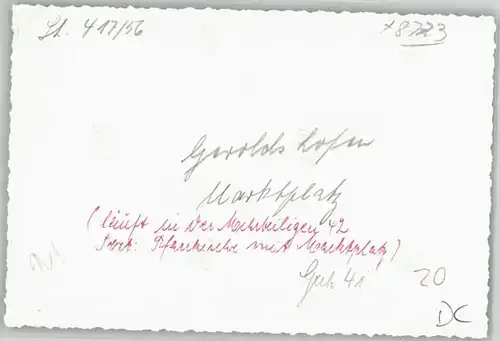 St. 417/56
x 8723
Gerolds hofen
Marktplatz
(läuft in der Mehrteiligen 42
Text: Pfarrkirche mit Marktplatz)
Grh 41
20
DC